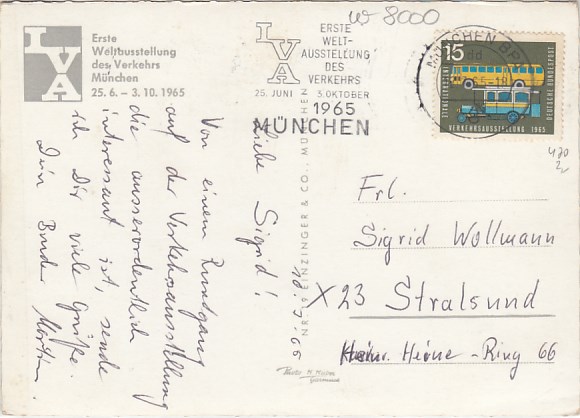 IVA
Erste
Weltausstellung
des Verkehrs
München
25. 6. – 3. 10. 1965
IVA
ERSTE
WELT-
AUSSTELLUNG
DES
VERKEHRS
25. JUNI 3. OKTOBER
1965
MÜNCHEN
w 8000
MÜNCHEN
15
DEUTSCHE BUNDESPOST
VERKEHRSAUSSTELLUNG 1965
470
Liebe Sigrid!
Von einem Rundgang
auf der Verkehrsausstellung
die ausserordentlich
interessant ist, sende
ich Dir viele Grüße.
Dein Bruder Martin.
EINZINGER & CO., MÜNCHEN
Frl.
Sigrid Wollmann
X 23 Stralsund
Heinr. Heine-Ring 66
Germany